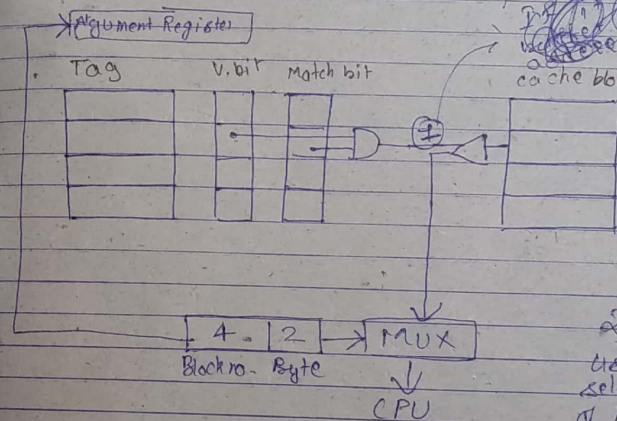 Argument Register
Tag V. bit Match bit
cache blo
1
4 2 MUX
Block no. Byte
CPU
sel